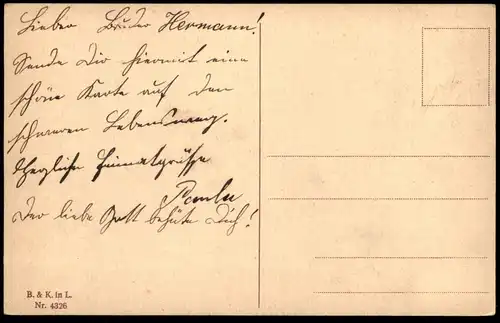 Lieber Bruder Hermann!
Sende Dir hiermit eine
schöne Karte auf den
schweren Lebensweg.
Herzliche Heimatgrüsse
Der liebe Gott behüte Dich!
B. & K. in L.
Nr. 4326